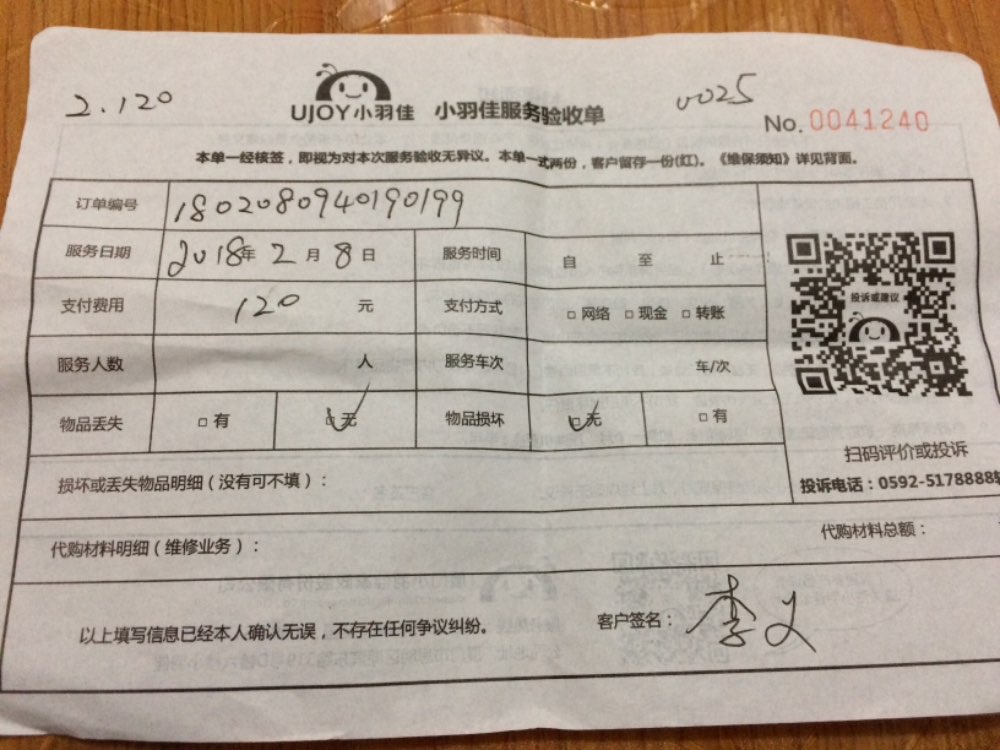 2.120
UJOY小羽佳 小羽佳服务验收单
0025
No. 0041240
本单一经核签，即视为对本次服务验收无异议。本单一式两份，客户留存一份(红)。《维保须知》详见背面。
订单编号 1802080940190199
服务日期 2018年 2月 8日 服务时间 自 至 止
支付费用 120 元 支付方式 □ 网络 □ 现金 □ 转账
投诉或建议
服务人数 人 服务车次 车/次
物品丢失 □ 有 ☑ 无 物品损坏 ☑ 无 □ 有
扫码评价或投诉
损坏或丢失物品明细（没有可不填）：
投诉电话：0592-5178888
代购材料明细（维修业务）： 代购材料总额：
以上填写信息已经本人确认无误，不存在任何争议纠纷。 客户签名： 李